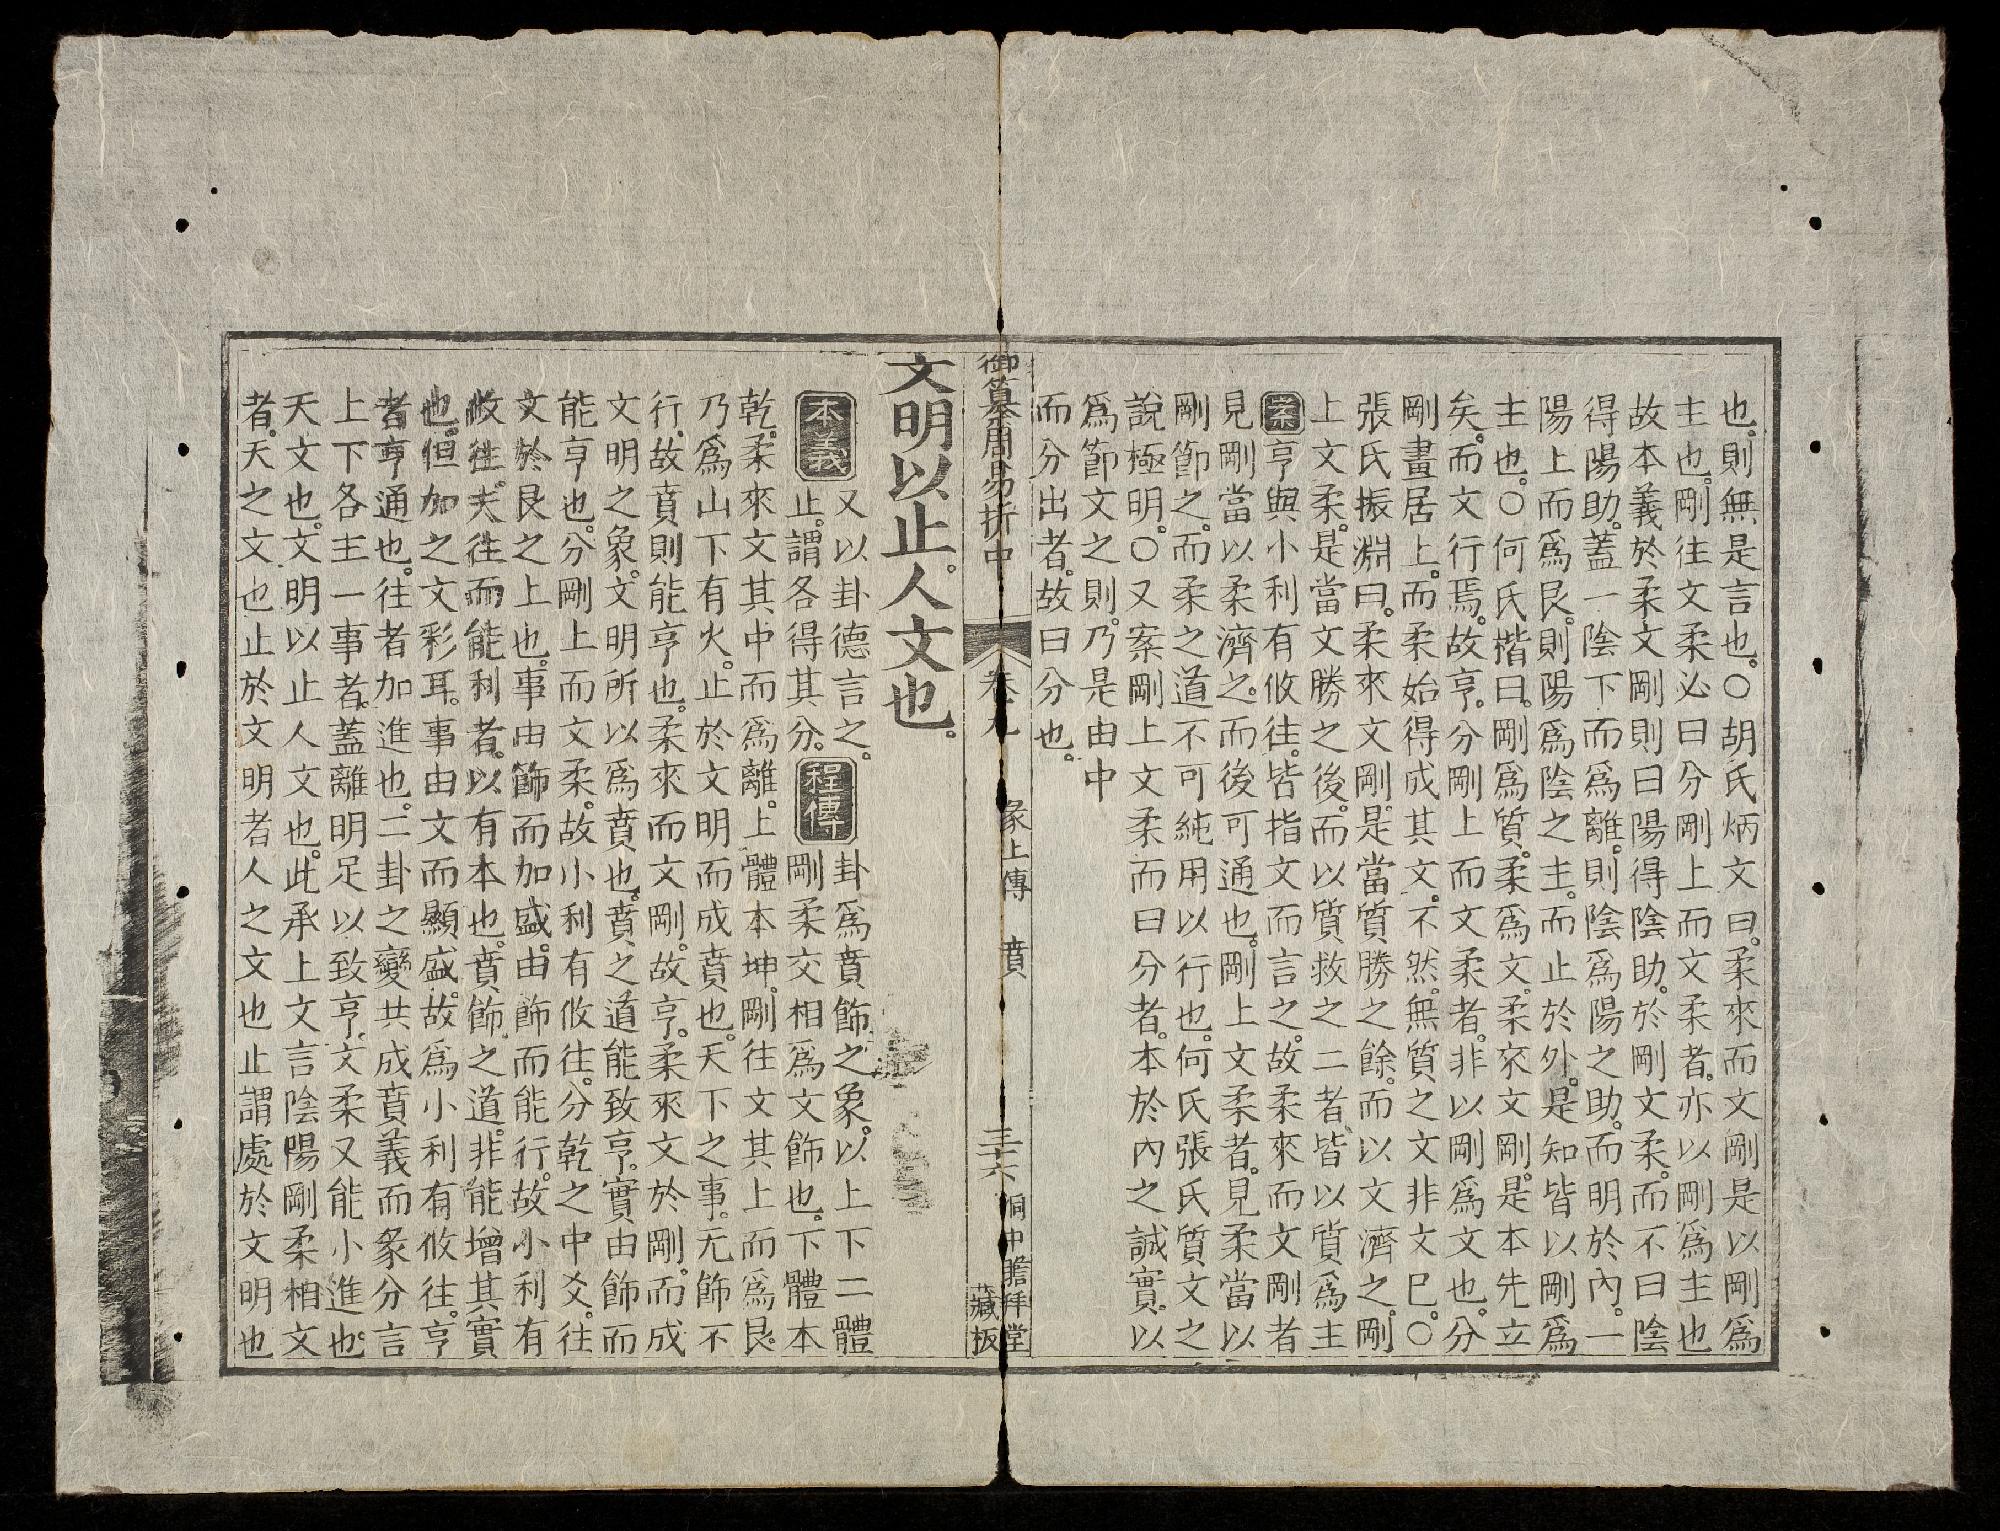 也。則無是言也。〇胡氏炳文曰。柔來而文剛是以剛爲
主也。剛往文柔必曰分剛上而文柔者。亦以剛爲主也
故本義於柔文剛則曰陽得陰助。於剛文柔。而不曰陰
得陽助。蓋一陰下而爲離。則陰爲陽之助。而明於內。一
陽上而爲艮。則陽爲陰之主。而止於外。是知皆以剛爲
主也。〇何氏揩曰。剛爲質。柔爲文。柔來文剛。是本先立
矣。而文行焉。故亨。分剛上而文柔者。非以剛爲文也。分
剛畫居上。而柔始得成其文。不然。無質之文非文已。〇
張氏振淵曰。柔來文剛。是當質勝之餘。而以文濟之。剛
上文柔。是當文勝之後。而以質救之二者皆以質爲主
案亨與小利有攸往。皆指文而言之。故柔來而文剛者
見剛當以柔濟之。而後可通也。剛上文柔者。見柔當以
剛節之。而柔之道不可純用以行也。何氏張氏質文之
說極明。〇又案剛上文柔而曰分者。本於內之誠實。以
爲節文之則。乃是由中
而分出者。故曰分也。
御纂周易折中
卷九
彖上傳
賁
三十六
中瞻拜堂
藏板
文明以止。人文也。
本義
又以卦德言之。
止。謂各得其分。
程傳
卦爲賁飾之象。以上下二體
剛柔交相爲文飾也。下體本
乾。柔來文其中而爲離。上體本坤。剛往文其上而爲艮。
乃爲山下有火。止於文明而成賁也。天下之事。无飾不
行。故賁則能亨也。柔來而文剛。故亨。柔來文於剛。而成
文明之象。文明所以爲賁也。賁之道能致亨。實由飾而
能亨也。分剛上而文柔。故小利有攸往。分乾之中爻。往
文於艮之上也。事由飾而加盛。由飾而能行。故小利有
攸往。夫往而能利者。以有本也。賁飾之道。非能增其實
也。但加之文彩耳。事由文而顯盛。故爲小利有攸往。亨
者。亨通也。往者加進也。二卦之變共成賁義而彖分言
上下各主一事者。蓋離明足以致亨。文柔又能小進也。
天文也。文明以止人文也。此承上文言陰陽剛柔相文
者。天之文也止於文明者人之文也止謂處於文明也